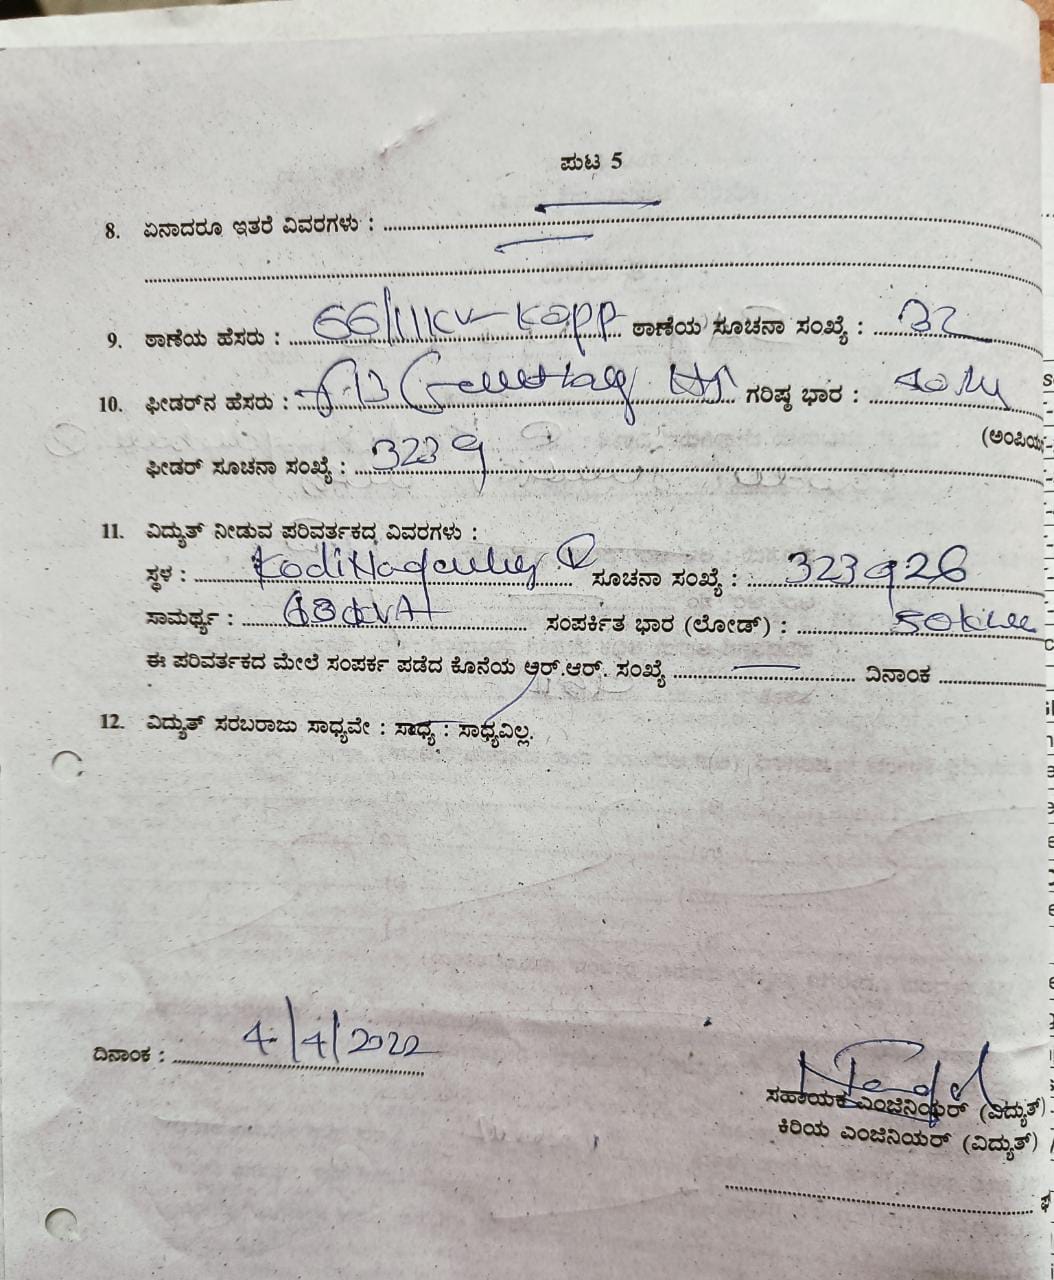 ಪುಟ 5
8. ಏನಾದರೂ ಇತರೆ ವಿವರಗಳು :
9. ಠಾಣೆಯ ಹೆಸರು : 66/11KV Kopp ಠಾಣೆಯ ಸೂಚನಾ ಸಂಖ್ಯೆ : 32
10. ಫೀಡರ್‌ನ ಹೆಸರು : ಗರಿಷ್ಠ ಭಾರ :
(ಅಂಪಿಯ
ಫೀಡರ್ ಸೂಚನಾ ಸಂಖ್ಯೆ : 3239
11. ವಿದ್ಯುತ್ ನೀಡುವ ಪರಿವರ್ತಕದ ವಿವರಗಳು :
ಸ್ಥಳ : ಸೂಚನಾ ಸಂಖ್ಯೆ : 323926
ಸಾಮರ್ಥ್ಯ : ಸಂಪರ್ಕಿತ ಭಾರ (ಲೋಡ್) :
ಈ ಪರಿವರ್ತಕದ ಮೇಲೆ ಸಂಪರ್ಕ ಪಡೆದ ಕೊನೆಯ ಆರ್.ಆರ್. ಸಂಖ್ಯೆ ದಿನಾಂಕ
12. ವಿದ್ಯುತ್ ಸರಬರಾಜು ಸಾಧ್ಯವೇ : ಸಾಧ್ಯ : ಸಾಧ್ಯವಿಲ್ಲ.
ದಿನಾಂಕ : 4/4/2022
ಸಹಾಯಕ ಎಂಜಿನಿಯರ್ (ವಿದ್ಯುತ್)
ಕಿರಿಯ ಎಂಜಿನಿಯರ್ (ವಿದ್ಯುತ್)